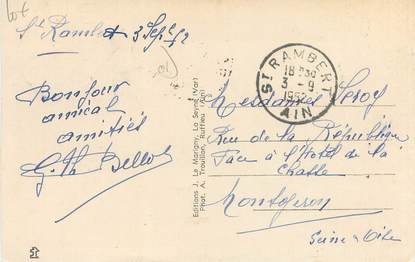 St Rambert 3 Sept 62
Bonjour
amical
amitiés
Editions J. Le Marigny, La Seyne (Var)
Phot. A. Trouillon, Ruffieu (Ain)
ST RAMBERT
18 H30
3 - 9
1962
AIN
Mesdames Leroy
Rue de la République
Face à l'Hotel de la
Chasse
Montgeron
Seine & Oise